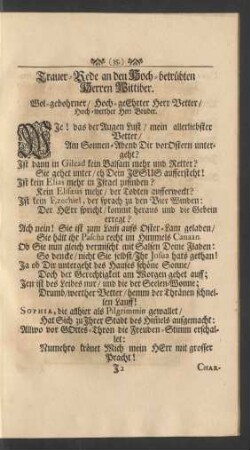 (35.)
Trauer-Rede an den Hoch-betrübten
Herren Wittiber.
Wol-gebohrner / Hoch-geEhrter Herr Vetter /
Hoch-werther Herr Bruder.
WJe! das der Augen Lust / mein allerliebster
Vetter /
Am Sonnen-Abend Dir vor Ostern unter-
geht?
Ist dann in Gilead kein Balsam mehr und Retter?
Sie gehet unter / eh Dein JESUS aufferstehst!
Ist kein Elias mehr in Israel zufinden?
Kein Elisäus mehr / der Todten aufferweckt?
Ist kein Ezechiel, der sprach zu den Vier Winden:
Der HErr spricht / kommt heraus und die Gebein
erregt?
Ach nein! Sie ist zum Lam auffs Oster-Lam geladen /
Sie hält ihr Pascha recht im Himmels Canaan.
Ob Sie nun gleich vermischt mit Salsen Deine Fladen:
So dencke / nicht Sie selbst / Ihr Josua hats gethan!
Ja ob Dir untergeht des Hauses schöne Sonne /
Doch der Gerechtigkeit am Morgen gehet auf;
Jen ist des Leibes nur / und die der Seelen-Wonne;
Drumb / werther Vetter / hemm der Thränen schnel-
len Lauff!
SOPHIA, die allhier als Pilgrimmin gewallet /
Hat Sich zu Ihrer Stadt des Himels aufgemacht:
Allwo vor GOttes-Thron die Freuden-Stimm erschal-
let:
Nunmehro krönet Mich mein HErr mit grosser
Pracht!
J2
CHAR-